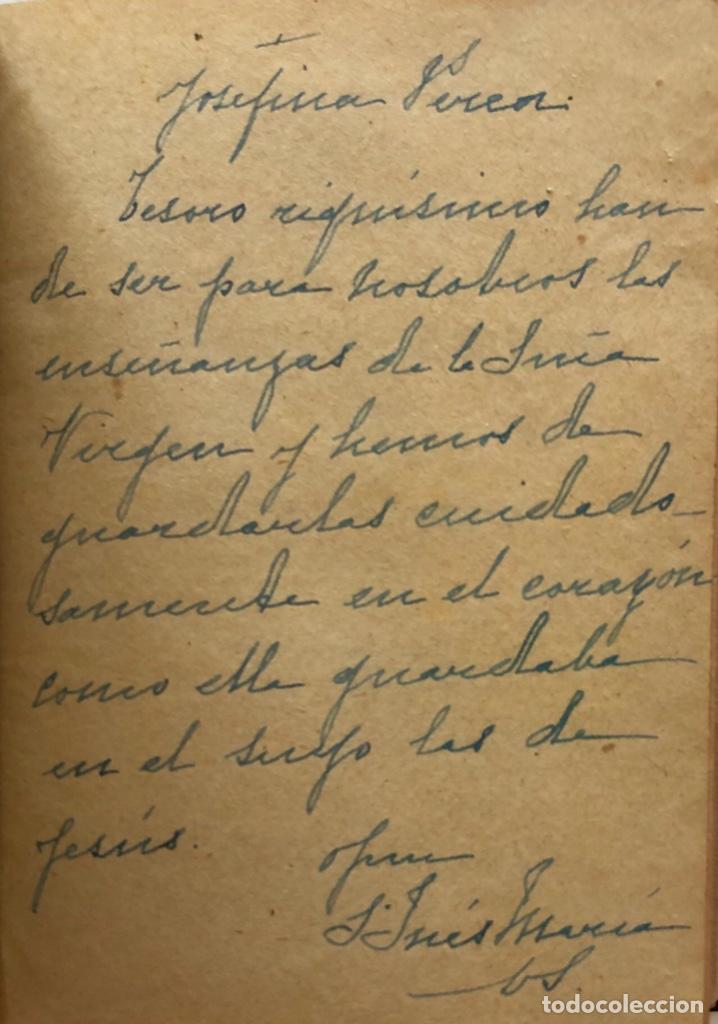 +
Josefina
Tesoro riquísimo han
de ser para nosotros las
enseñanzas de la Sma
Virgen y hemos de
guardarlas cuidado-
samente en el corazón
como ella guardaba
en el suyo las de
Jesús.
opm
S. Inés María
todocoleccion